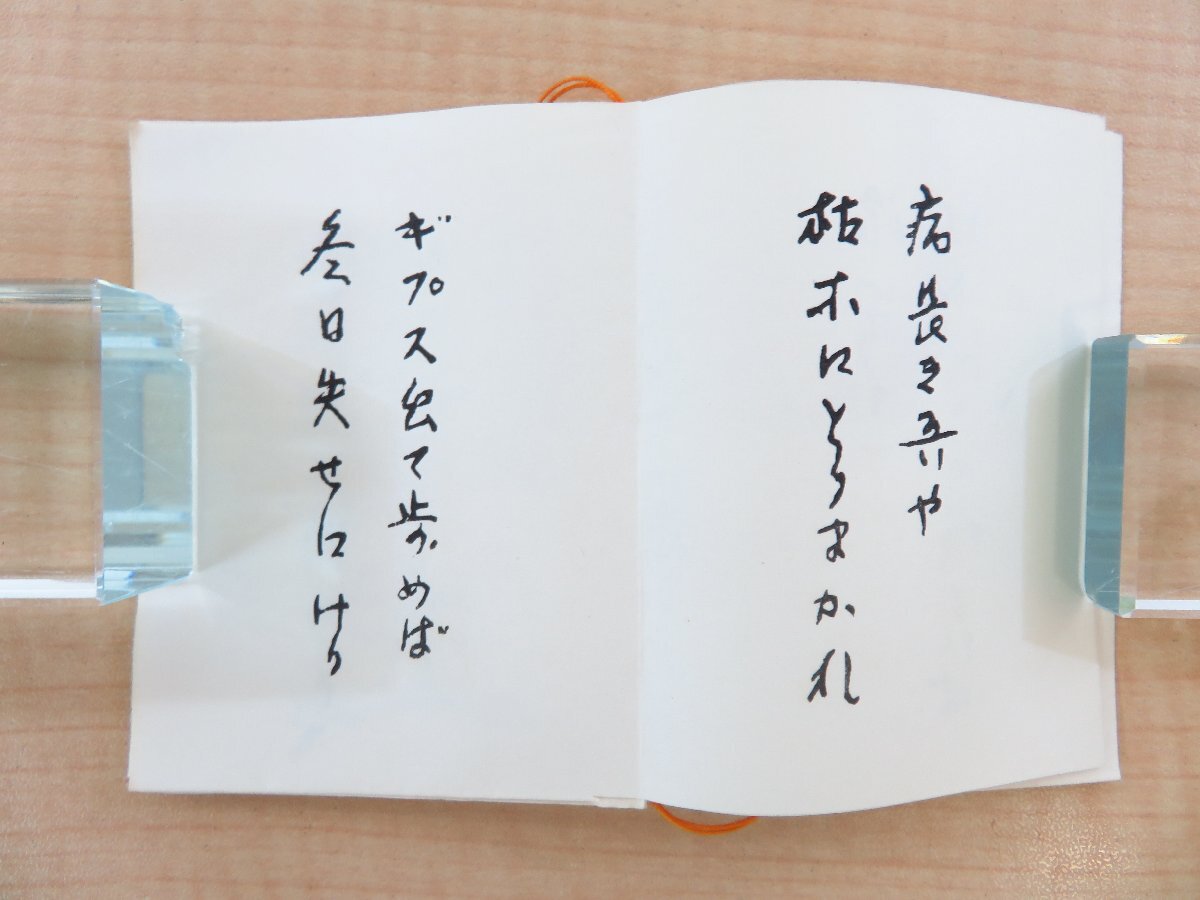 病長き吾や
枯木にとりまかれ
ギプス出て歩めば
冬日失せにけり